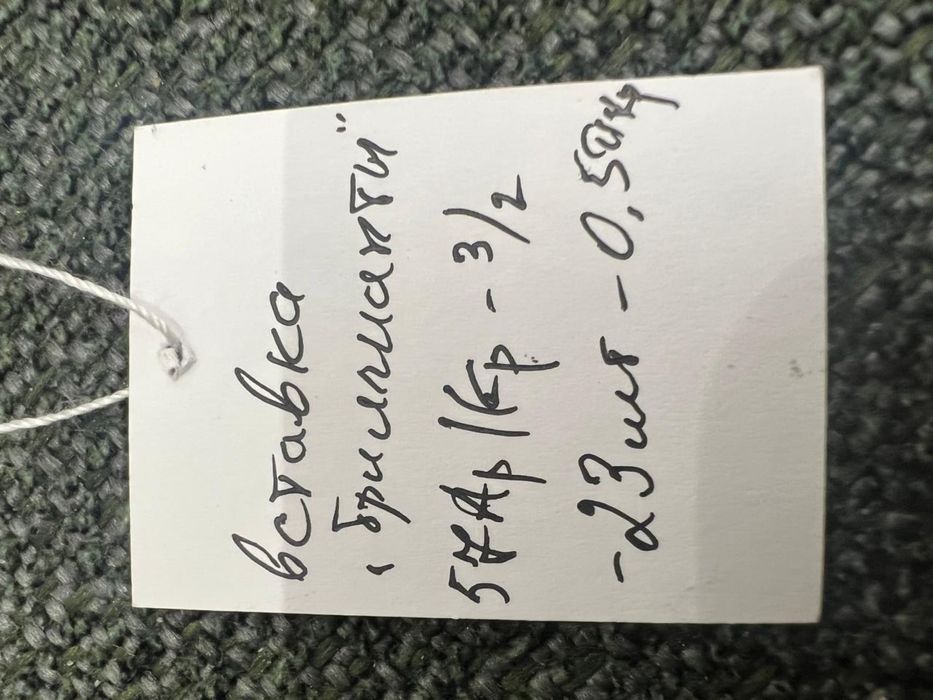 вставка
"бриллианты"
57Ар/Кр - 3/2
-23шт - 0,5